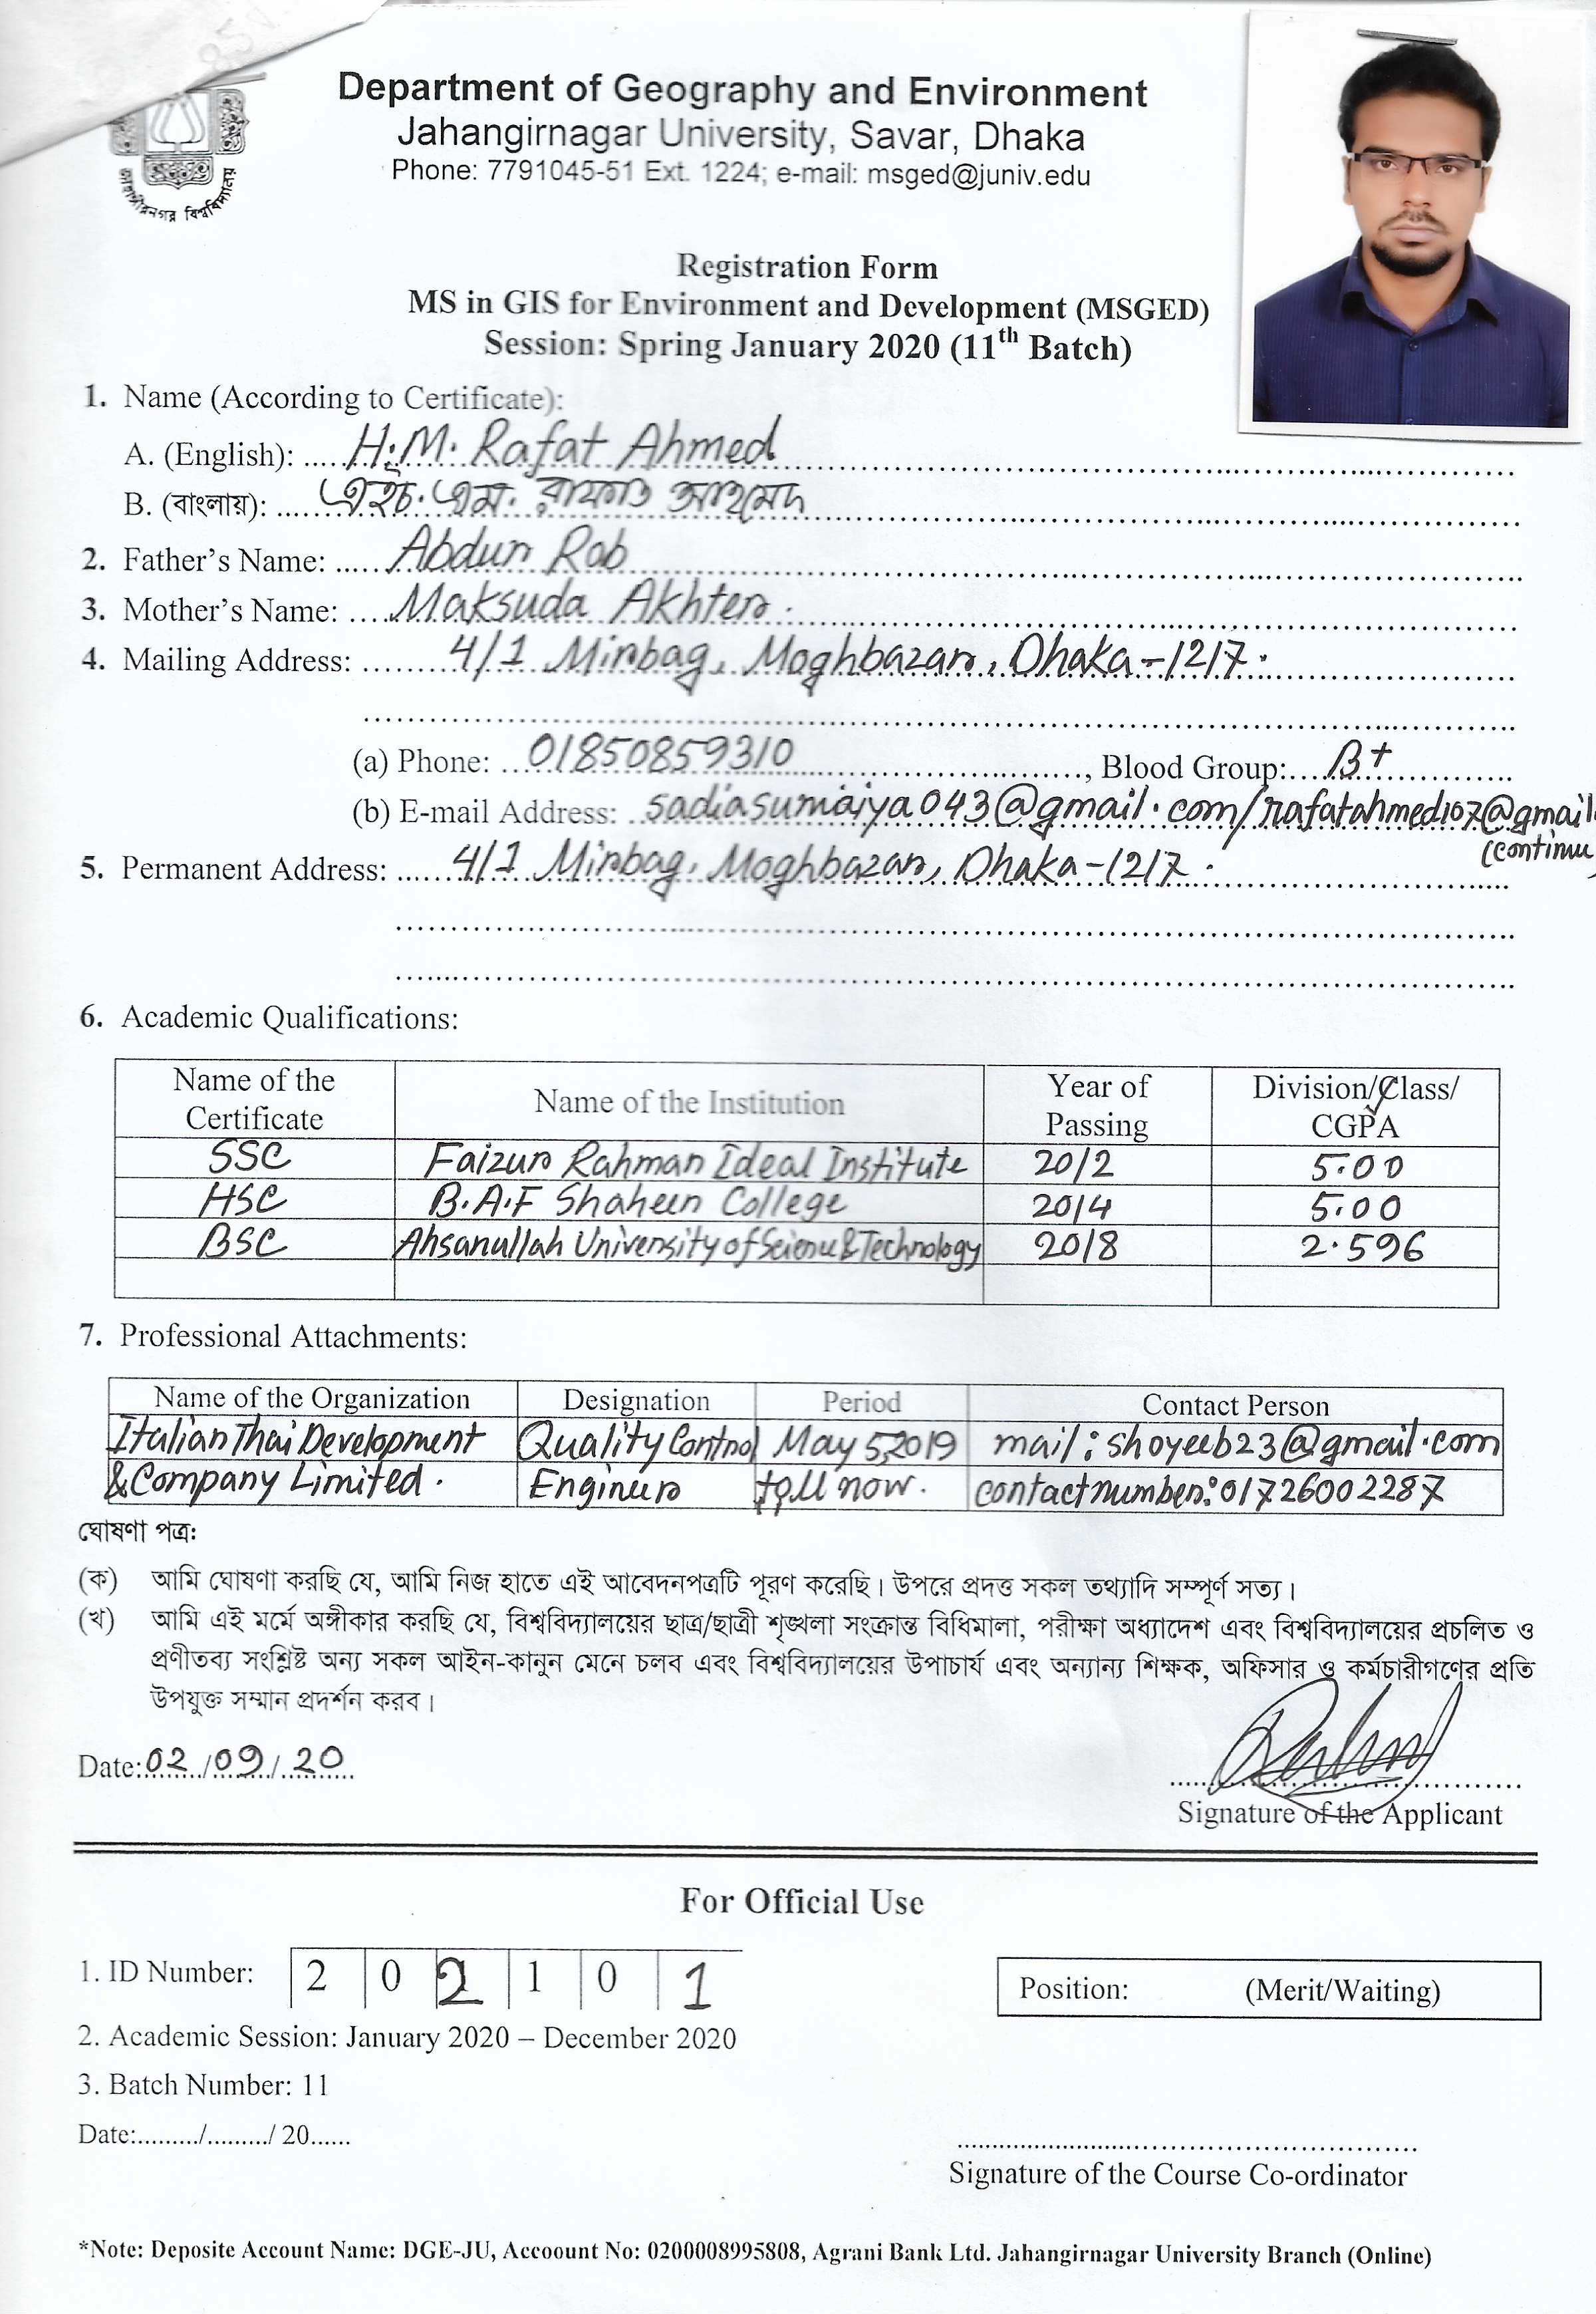 জাহাঙ্গীরনগর বিশ্ববিদ্যালয়
Department of Geography and Environment
Jahangirnagar University, Savar, Dhaka
Phone: 7791045-51 Ext. 1224; e-mail: msged@juniv.edu
Registration Form
MS in GIS for Environment and Development (MSGED)
Session: Spring January 2020 (11th Batch)
1. Name (According to Certificate):
A. (English): H.M. Rafat Ahmed
B. (বাংলায়): এইচ. এম. রাফাত আহমেদ
2. Father's Name: Abdur Rob
3. Mother's Name: Maksuda Akhter.
4. Mailing Address: 4/1 Mirbag, Moghbazar, Dhaka-1217.
(a) Phone: 01850859310, Blood Group: B+
(b) E-mail Address: sadiasumaiya043@gmail.com/rafatahmed107@gmail
(continu
5. Permanent Address: 4/1 Mirbag, Moghbazar, Dhaka-1217.
6. Academic Qualifications:
Name of the Certificate Name of the Institution Year of Passing Division/Class/ CGPA
SSC Faizur Rahman Ideal Institute 2012 5.00
HSC B.A.F Shaheen College 2014 5.00
BSC Ahsanullah University of Science & Technology 2018 2.596
7. Professional Attachments:
Name of the Organization Designation Period Contact Person
Italian Thai Development Quality Control May 5,2019 mail: shoyeeb23@gmail.com
& Company Limited. Engineer till now. contact number: 01726002287
ঘোষণা পত্র:
(ক) আমি ঘোষণা করছি যে, আমি নিজ হাতে এই আবেদনপত্রটি পূরণ করেছি। উপরে প্রদত্ত সকল তথ্যাদি সম্পূর্ণ সত্য।
(খ) আমি এই মর্মে অঙ্গীকার করছি যে, বিশ্ববিদ্যালয়ের ছাত্র/ছাত্রী শৃঙ্খলা সংক্রান্ত বিধিমালা, পরীক্ষা অধ্যাদেশ এবং বিশ্ববিদ্যালয়ের প্রচলিত ও
প্রণীতব্য সংশ্লিষ্ট অন্য সকল আইন-কানুন মেনে চলব এবং বিশ্ববিদ্যালয়ের উপাচার্য এবং অন্যান্য শিক্ষক, অফিসার ও কর্মচারীগণের প্রতি
উপযুক্ত সম্মান প্রদর্শন করব।
Date: 02/09/20
Signature of the Applicant
For Official Use
1. ID Number: 2 0 2 1 0 1
Position: (Merit/Waiting)
2. Academic Session: January 2020 – December 2020
3. Batch Number: 11
Date:........./........./ 20......
Signature of the Course Co-ordinator
*Note: Deposite Account Name: DGE-JU, Accoount No: 0200008995808, Agrani Bank Ltd. Jahangirnagar University Branch (Online)